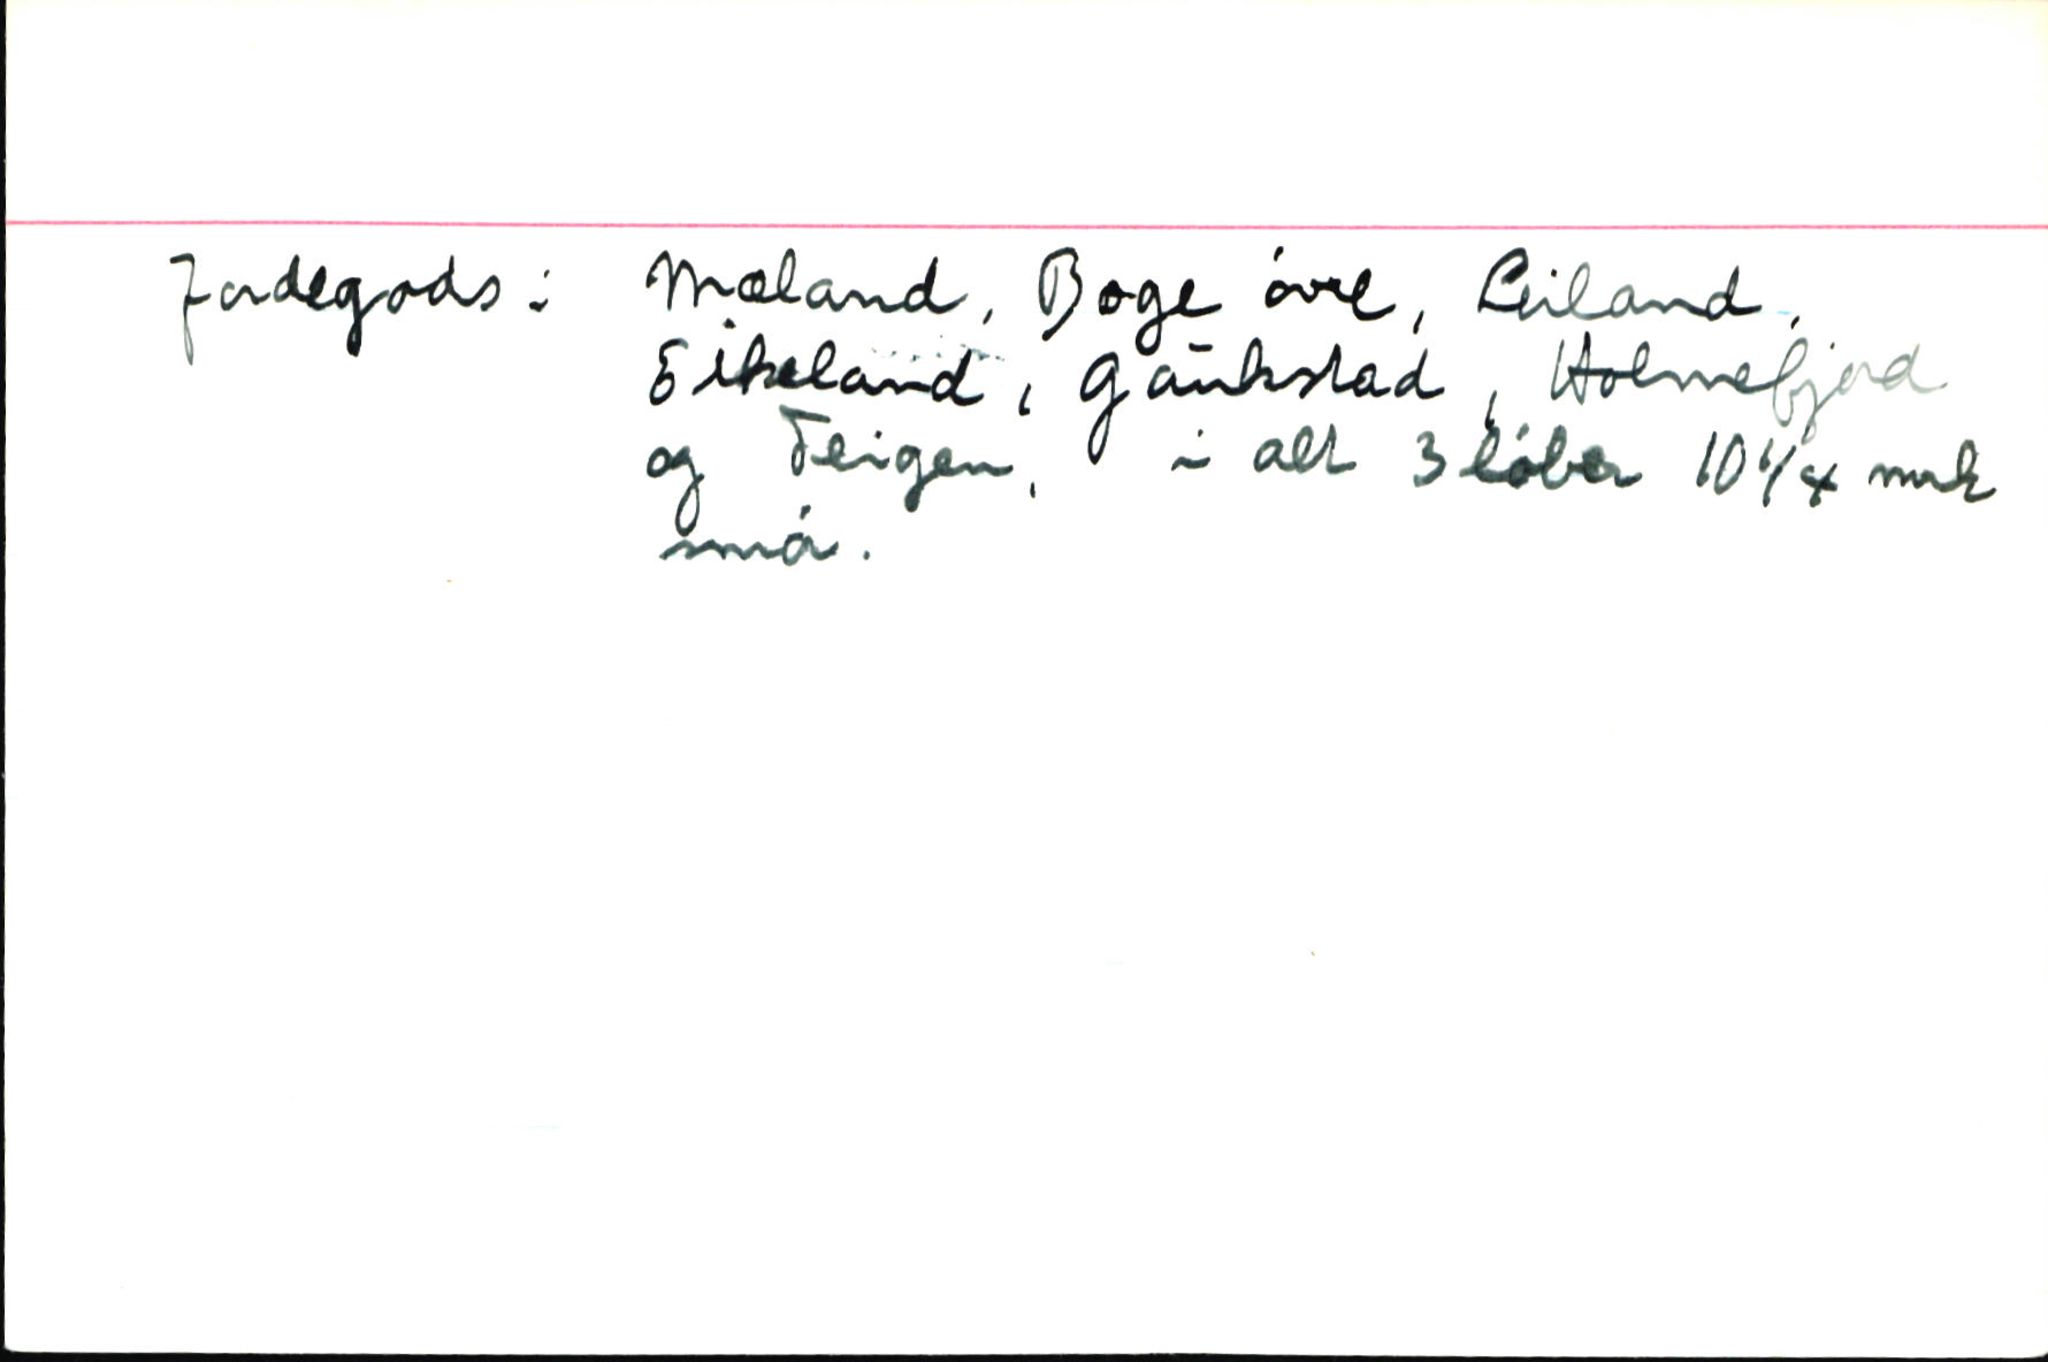 Jordegods: Mæland, Boge óvre, Leiland,
Eikeland, Gaukstad, Holmefjord
og Teigen, i alt 3 lóber 10 1/4 mrk
smór.